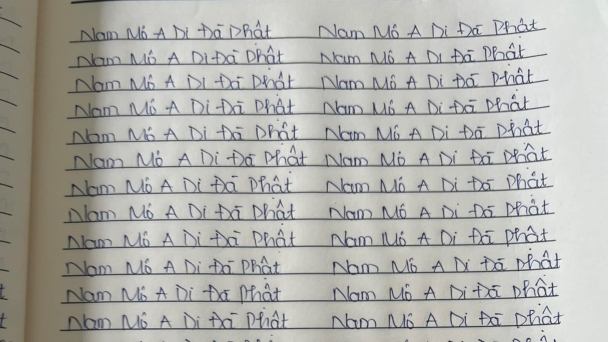 Nam Mô A Di Đà Phật Nam Mô A Di Đà Phật
Nam Mô A Di Đà Phật Nam Mô A Di Đà Phật
Nam Mô A Di Đà Phật Nam Mô A Di Đà Phật
Nam Mô A Di Đà Phật Nam Mô A Di Đà Phật
Nam Mô A Di Đà Phật Nam Mô A Di Đà Phật
Nam Mô A Di Đà Phật Nam Mô A Di Đà Phật
Nam Mô A Di Đà Phật Nam Mô A Di Đà Phật
Nam Mô A Di Đà Phật Nam Mô A Di Đà Phật
Nam Mô A Di Đà Phật Nam Mô A Di Đà Phật
Nam Mô A Di Đà Phật Nam Mô A Di Đà Phật
Nam Mô A Di Đà Phật Nam Mô A Di Đà Phật
Nam Mô A Di Đà Phật Nam Mô A Di Đà Phật